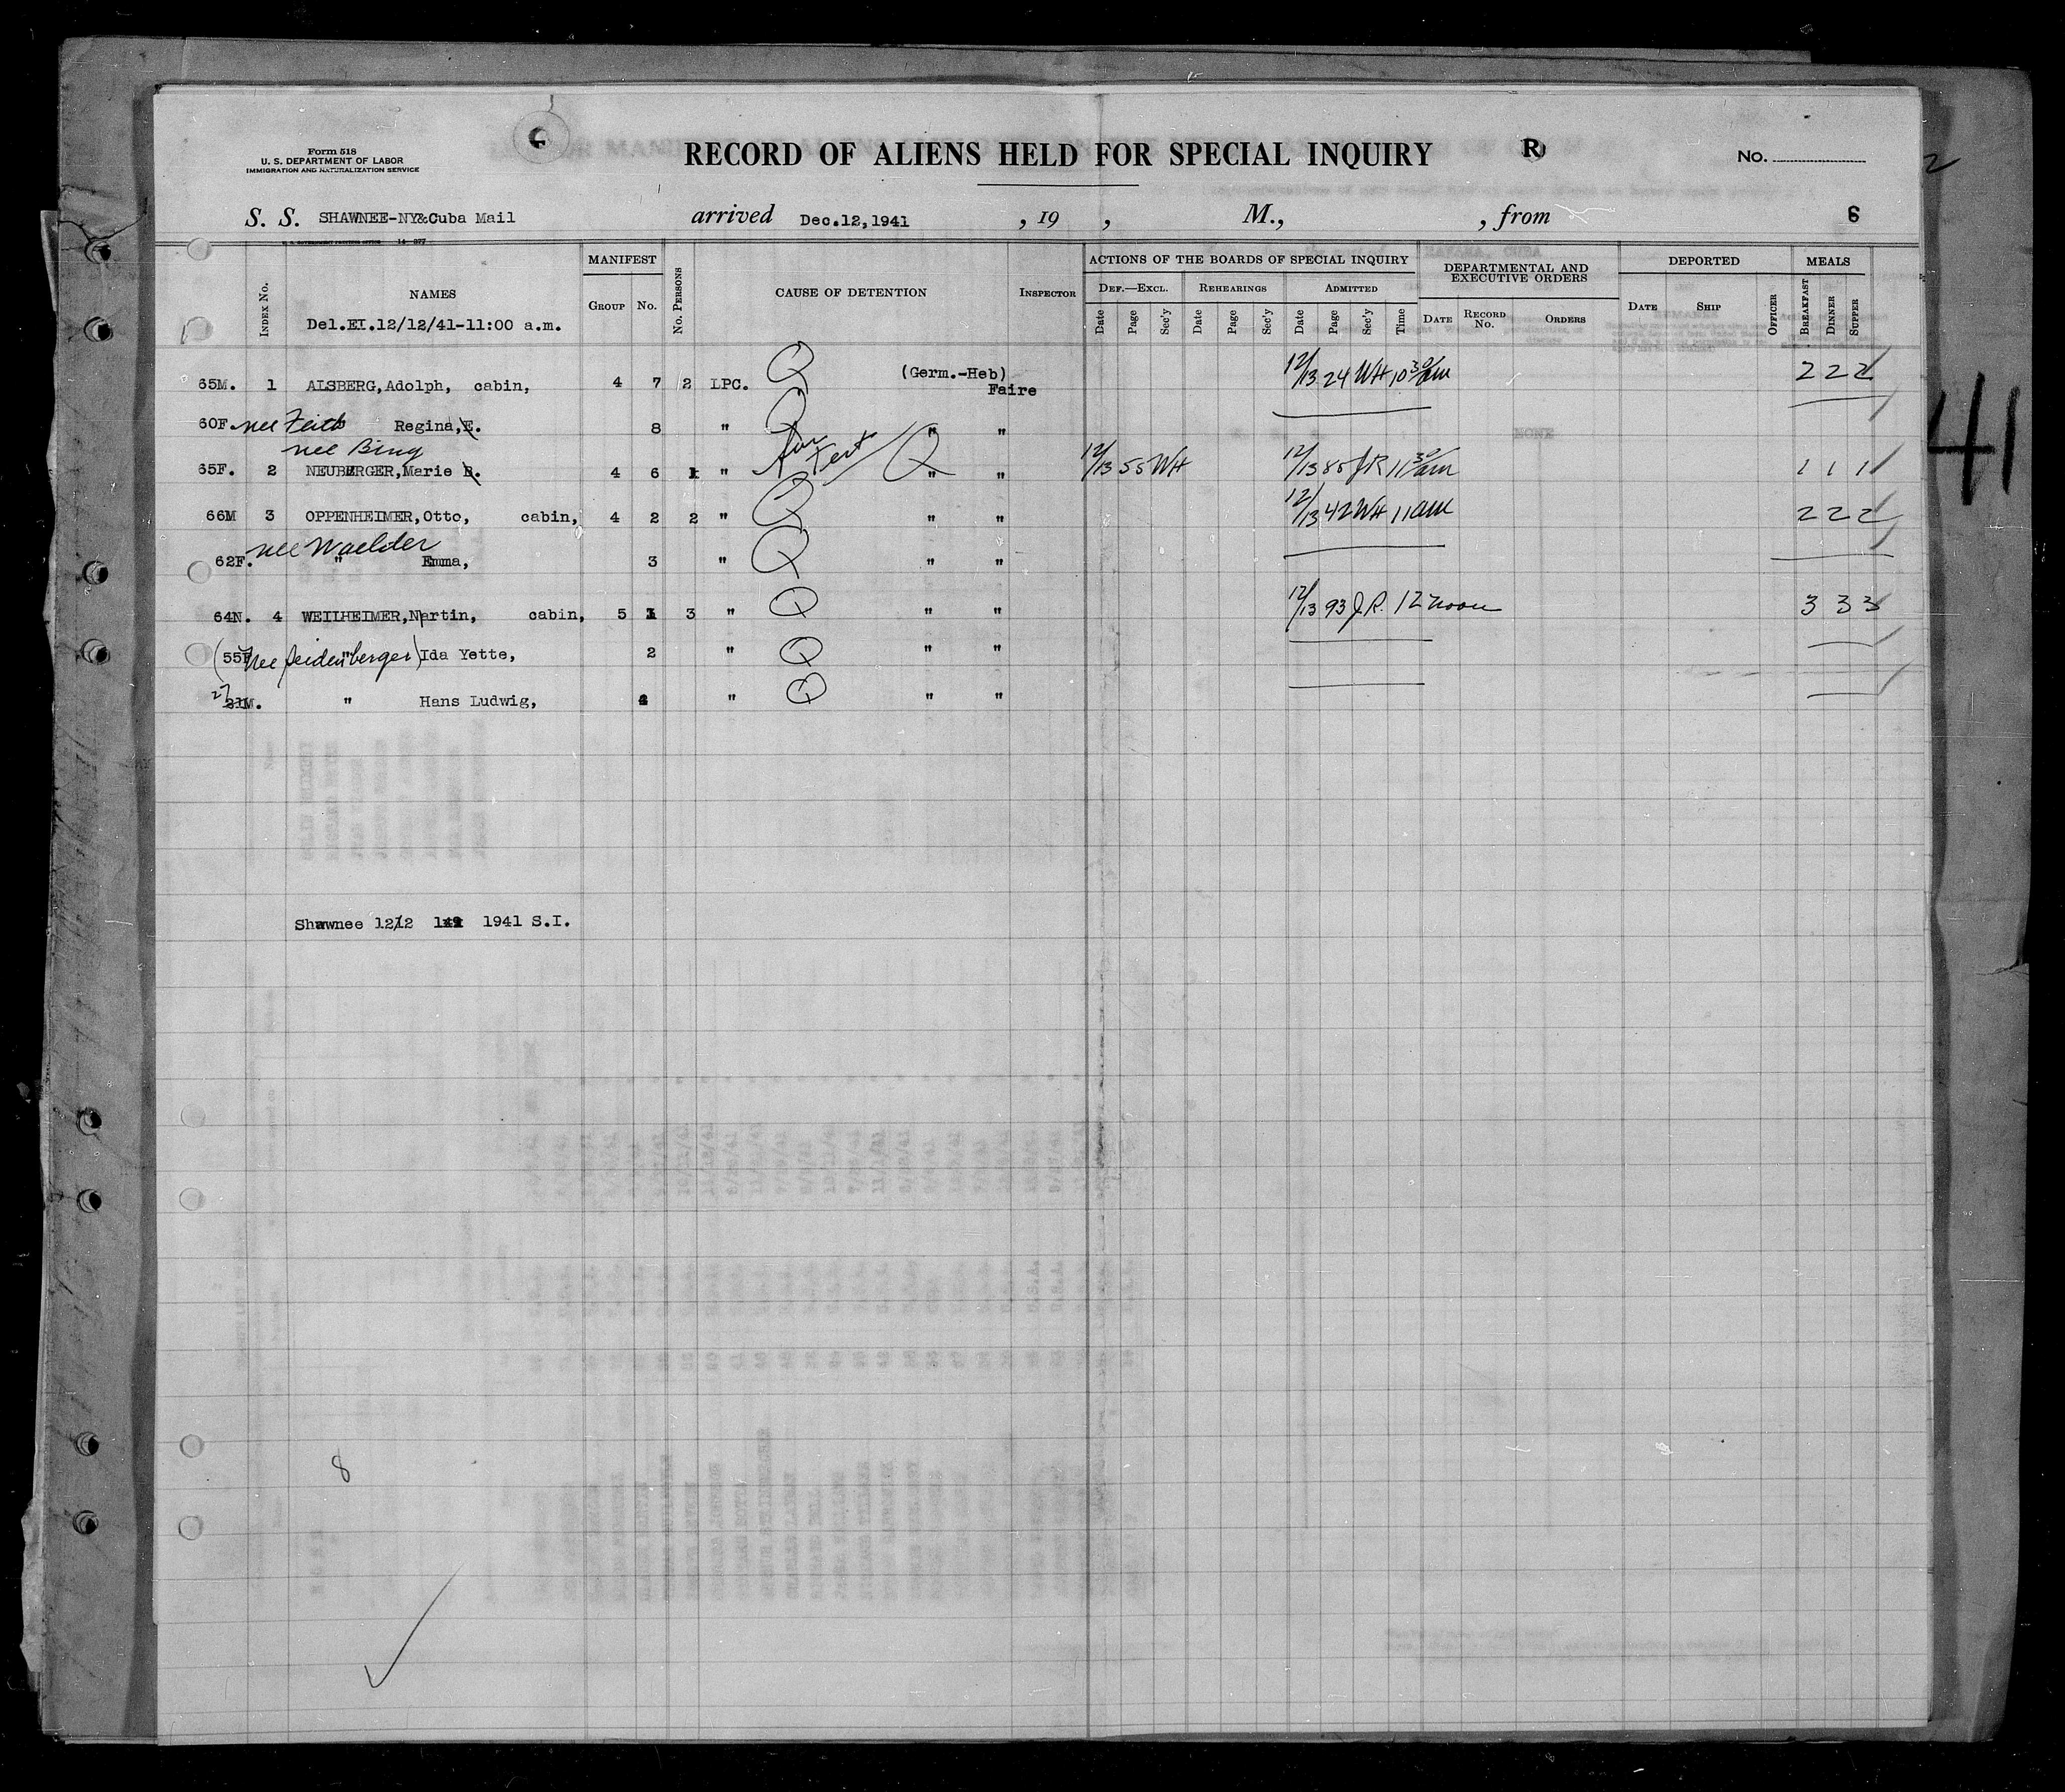 Form 518
U. S. DEPARTMENT OF LABOR
IMMIGRATION AND NATURALIZATION SERVICE
RECORD OF ALIENS HELD FOR SPECIAL INQUIRY R No.
2
S. S. SHAWNEE-NY&Cuba Mail arrived Dec.12,1941 , 19 , M., , from 6
U. S. GOVERNMENT PRINTING OFFICE 14-277
MANIFEST ACTIONS OF THE BOARDS OF SPECIAL INQUIRY DEPARTMENTAL AND EXECUTIVE ORDERS DEPORTED MEALS
Index No. NAMES Group No. No. Persons CAUSE OF DETENTION Inspector Def.—Excl. Rehearings Admitted
Date Page Sec'y Date Page Sec'y Date Page Sec'y Time Date Record No. Orders Date Ship Officer Breakfast Dinner Supper
Del.EI.12/12/41-11:00 a.m.
65M. 1 ALSBERG,Adolph, cabin, 4 7 2 LPC. Q (Germ.-Heb) Faire 12/13 24 WH 10 30/am 2 2 2
60F. nee Feith Regina,E. 8 " Q " "
nee Bing
65F. 2 NEUBERGER,Marie B. 4 6 1 " Q " " 12/13 55 WH 12/13 85 JR 11 30/am 1 1 1
66M 3 OPPENHEIMER,Otto, cabin, 4 2 2 " Q " " 12/13 42 WH 11am 2 2 2
nee Waelder
62F. " Emma, 3 " Q " "
64N. 4 WEILHEIMER,Martin, cabin, 5 1 3 " Q " " 12/13 93 J.R. 12 noon 3 3 3
(55F nee Seidenberger) " Ida Yette, 2 " Q " "
27 21M. " Hans Ludwig, 4 " Q " "
41
Shawnee 12/12 1941 S.I.
8